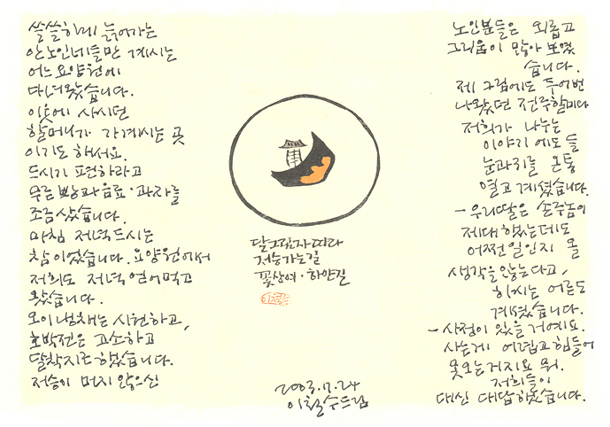 쓸쓸하게 늙어가는
안노인네들만 계시는
어느 요양원에
다녀왔습니다.
이웃에 사시던
할머니가 가 계시는 곳
이기도 해서요.
드시기 편하라고
무른 빵과 음료·과자를
조금 샀습니다.
마침 저녁 드시는
참이었습니다. 요양원에서
저희도 저녁 얻어먹고
왔습니다.
오이냉채는 시원하고,
호박전은 고소하고
달착지근 했습니다.
저승이 머지 않으신
달그림자 따라
저승 가는 길
꽃상여·하얀길
2003.7.24
이철수 드림
노인분들은 외롭고
그리움이 많아 보였
습니다.
제 그림에도 두어번
나왔던 전주할머니
저희가 나누는
이야기에도 들
눈과 귀를 온통
열고 계셨습니다.
- 우리딸은 손주놈이
제대했는데도
어쩐 일인지 올
생각을 않는다고,
하시는 어른도
계셨습니다.
- 사정이 있을 거예요.
사는게 어렵고 힘들어
못 오는 거지요 뭐.
저희들이
대신 대답 하였습니다.